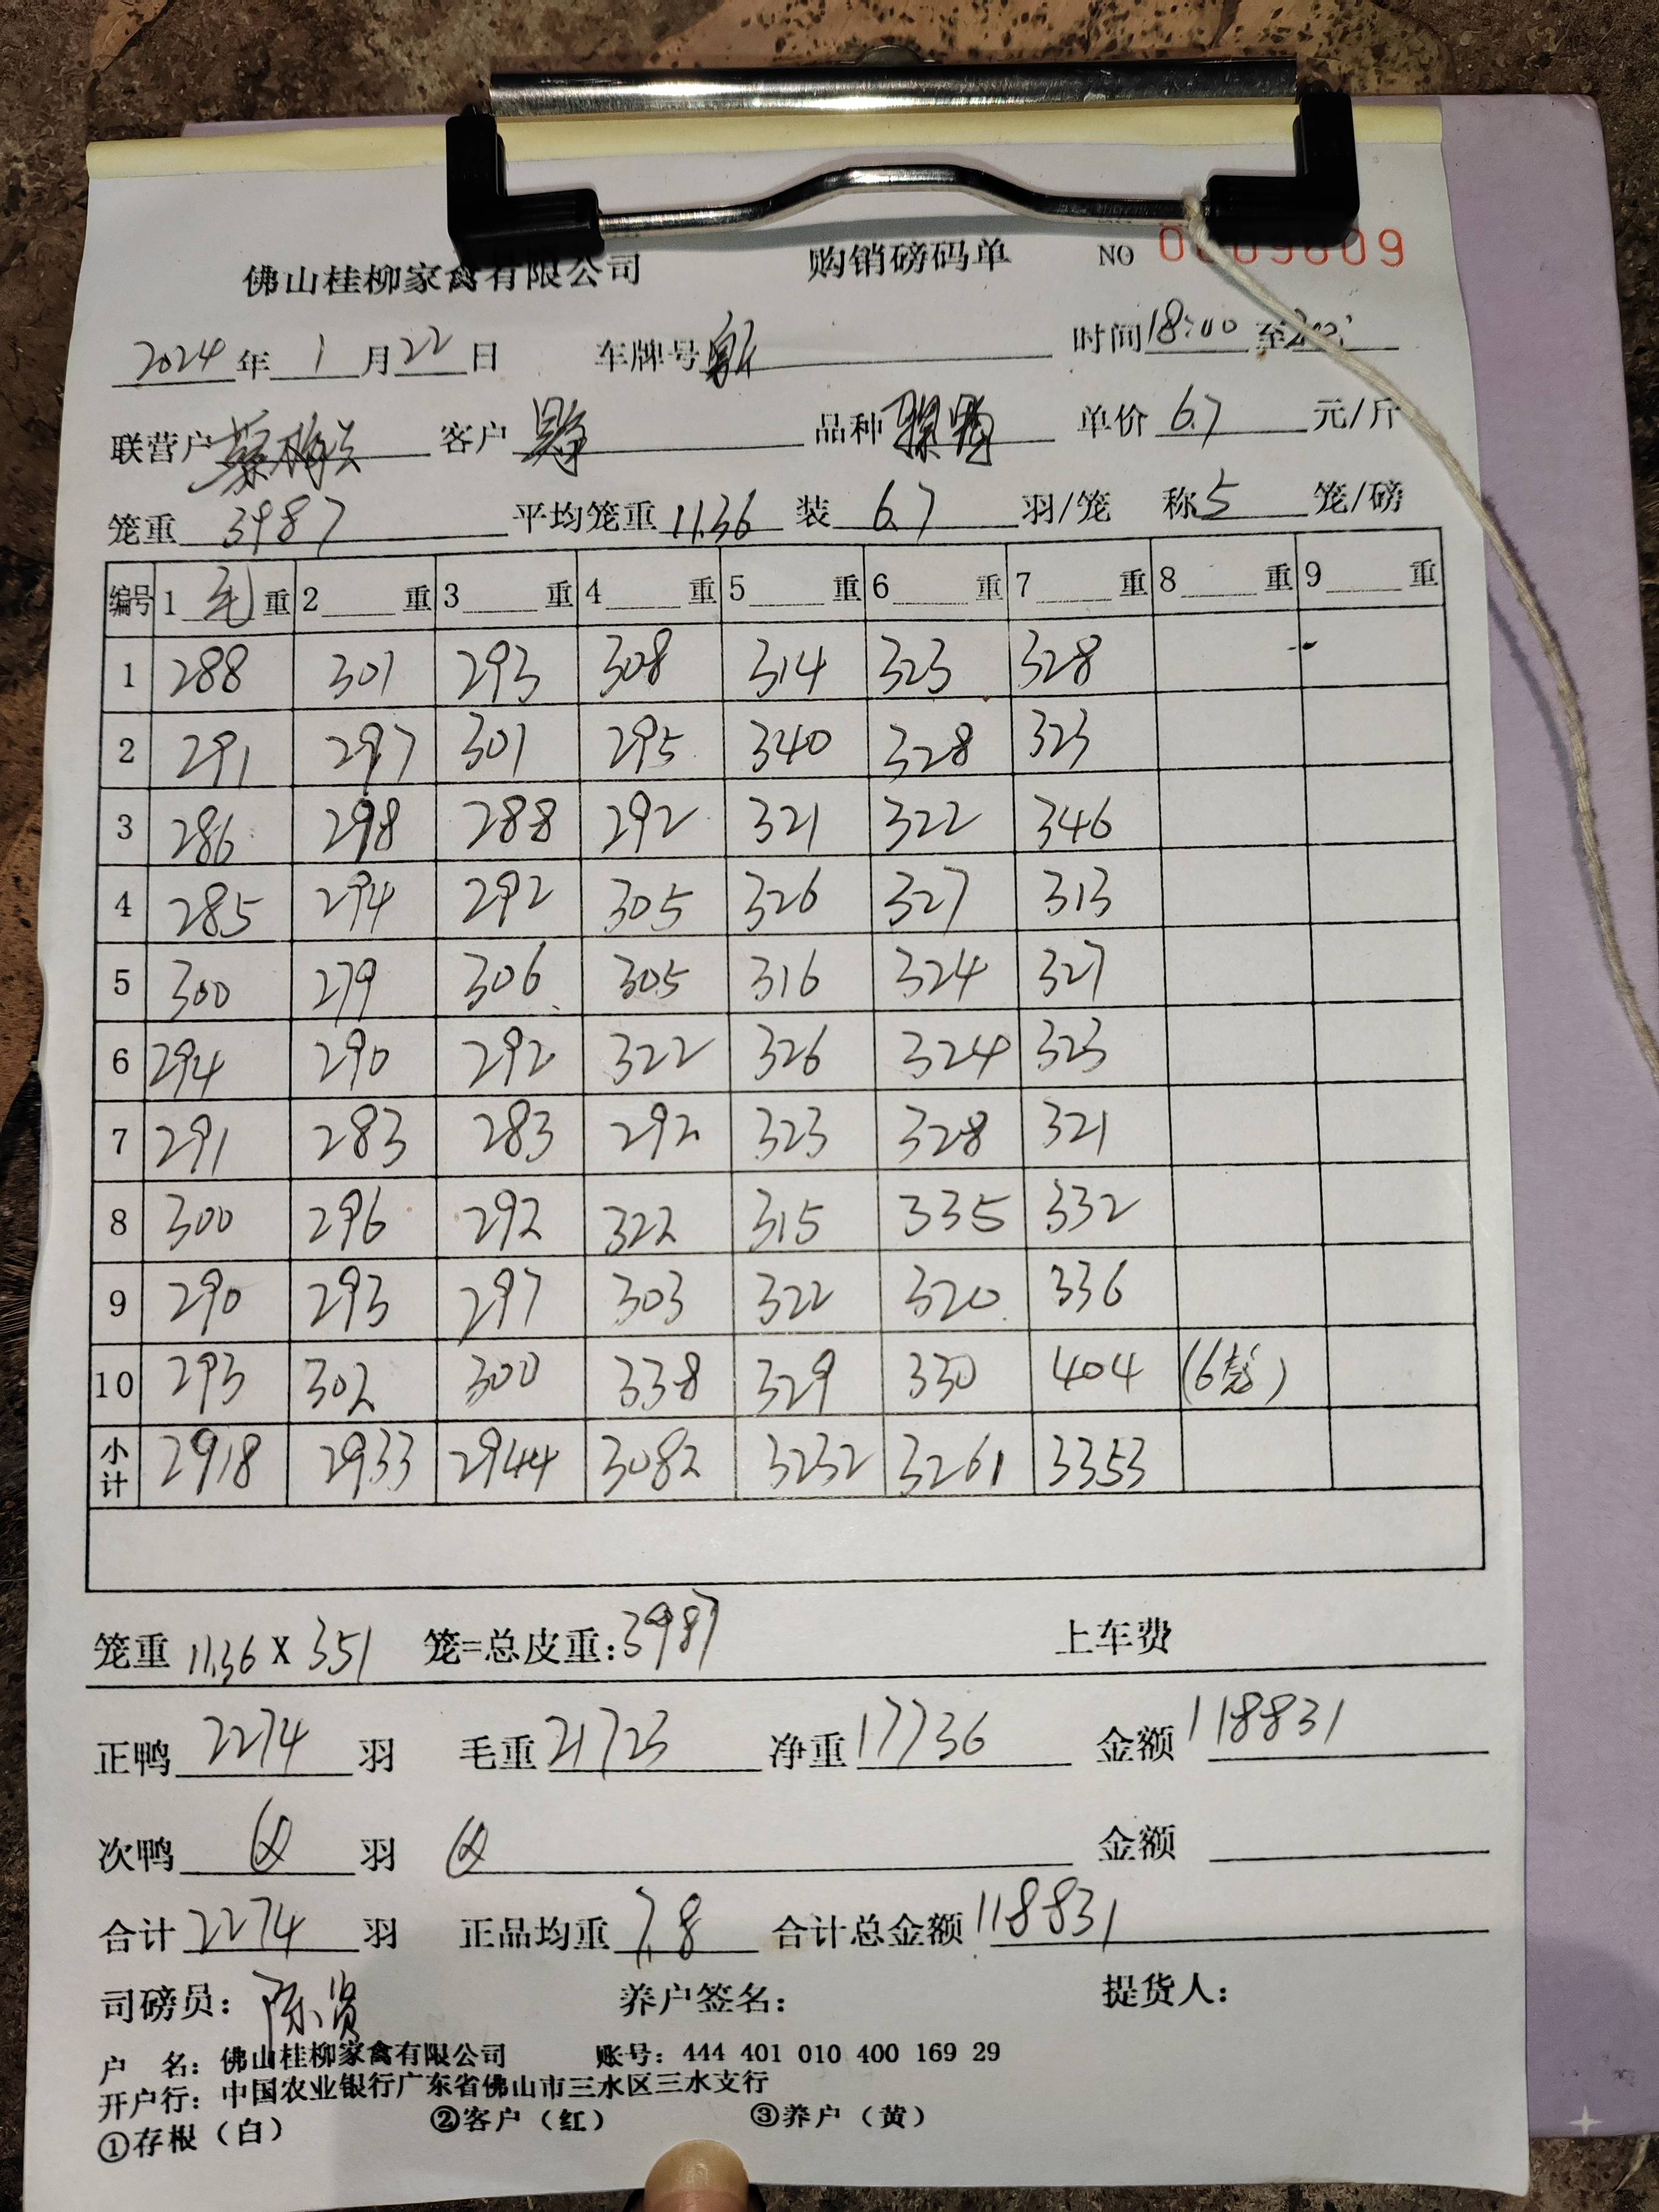 佛山桂柳家禽有限公司 购销磅码单 NO
2024年1月22日 车牌号 时间18:00至
联营户 客户 品种 单价6.7元/斤
笼重3987 平均笼重11.36 装6.7羽/笼 称5笼/磅
编号 1毛重 2重 3重 4重 5重 6重 7重 8重 9重
1 288 301 293 308 314 323 328
2 291 297 301 295 340 328 323
3 286 298 288 292 321 322 346
4 285 294 292 305 326 327 313
5 300 279 306 305 316 324 327
6 294 290 292 322 326 324 323
7 291 283 283 292 323 328 321
8 300 296 292 322 315 335 332
9 290 293 297 303 322 320 336
10 293 302 300 338 329 330 404 (6笼)
小计 2918 2933 2944 3082 3232 3261 3353
笼重11.36X351笼=总皮重:3987 上车费
正鸭2274羽 毛重21723 净重17736 金额118831
次鸭 羽 金额
合计2274羽 正品均重7.8 合计总金额118831
司磅员:陈贤 养户签名: 提货人:
户名:佛山桂柳家禽有限公司 账号:444 401 010 400 169 29
开户行:中国农业银行广东省佛山市三水区三水支行
①存根(白) ②客户(红) ③养户(黄)